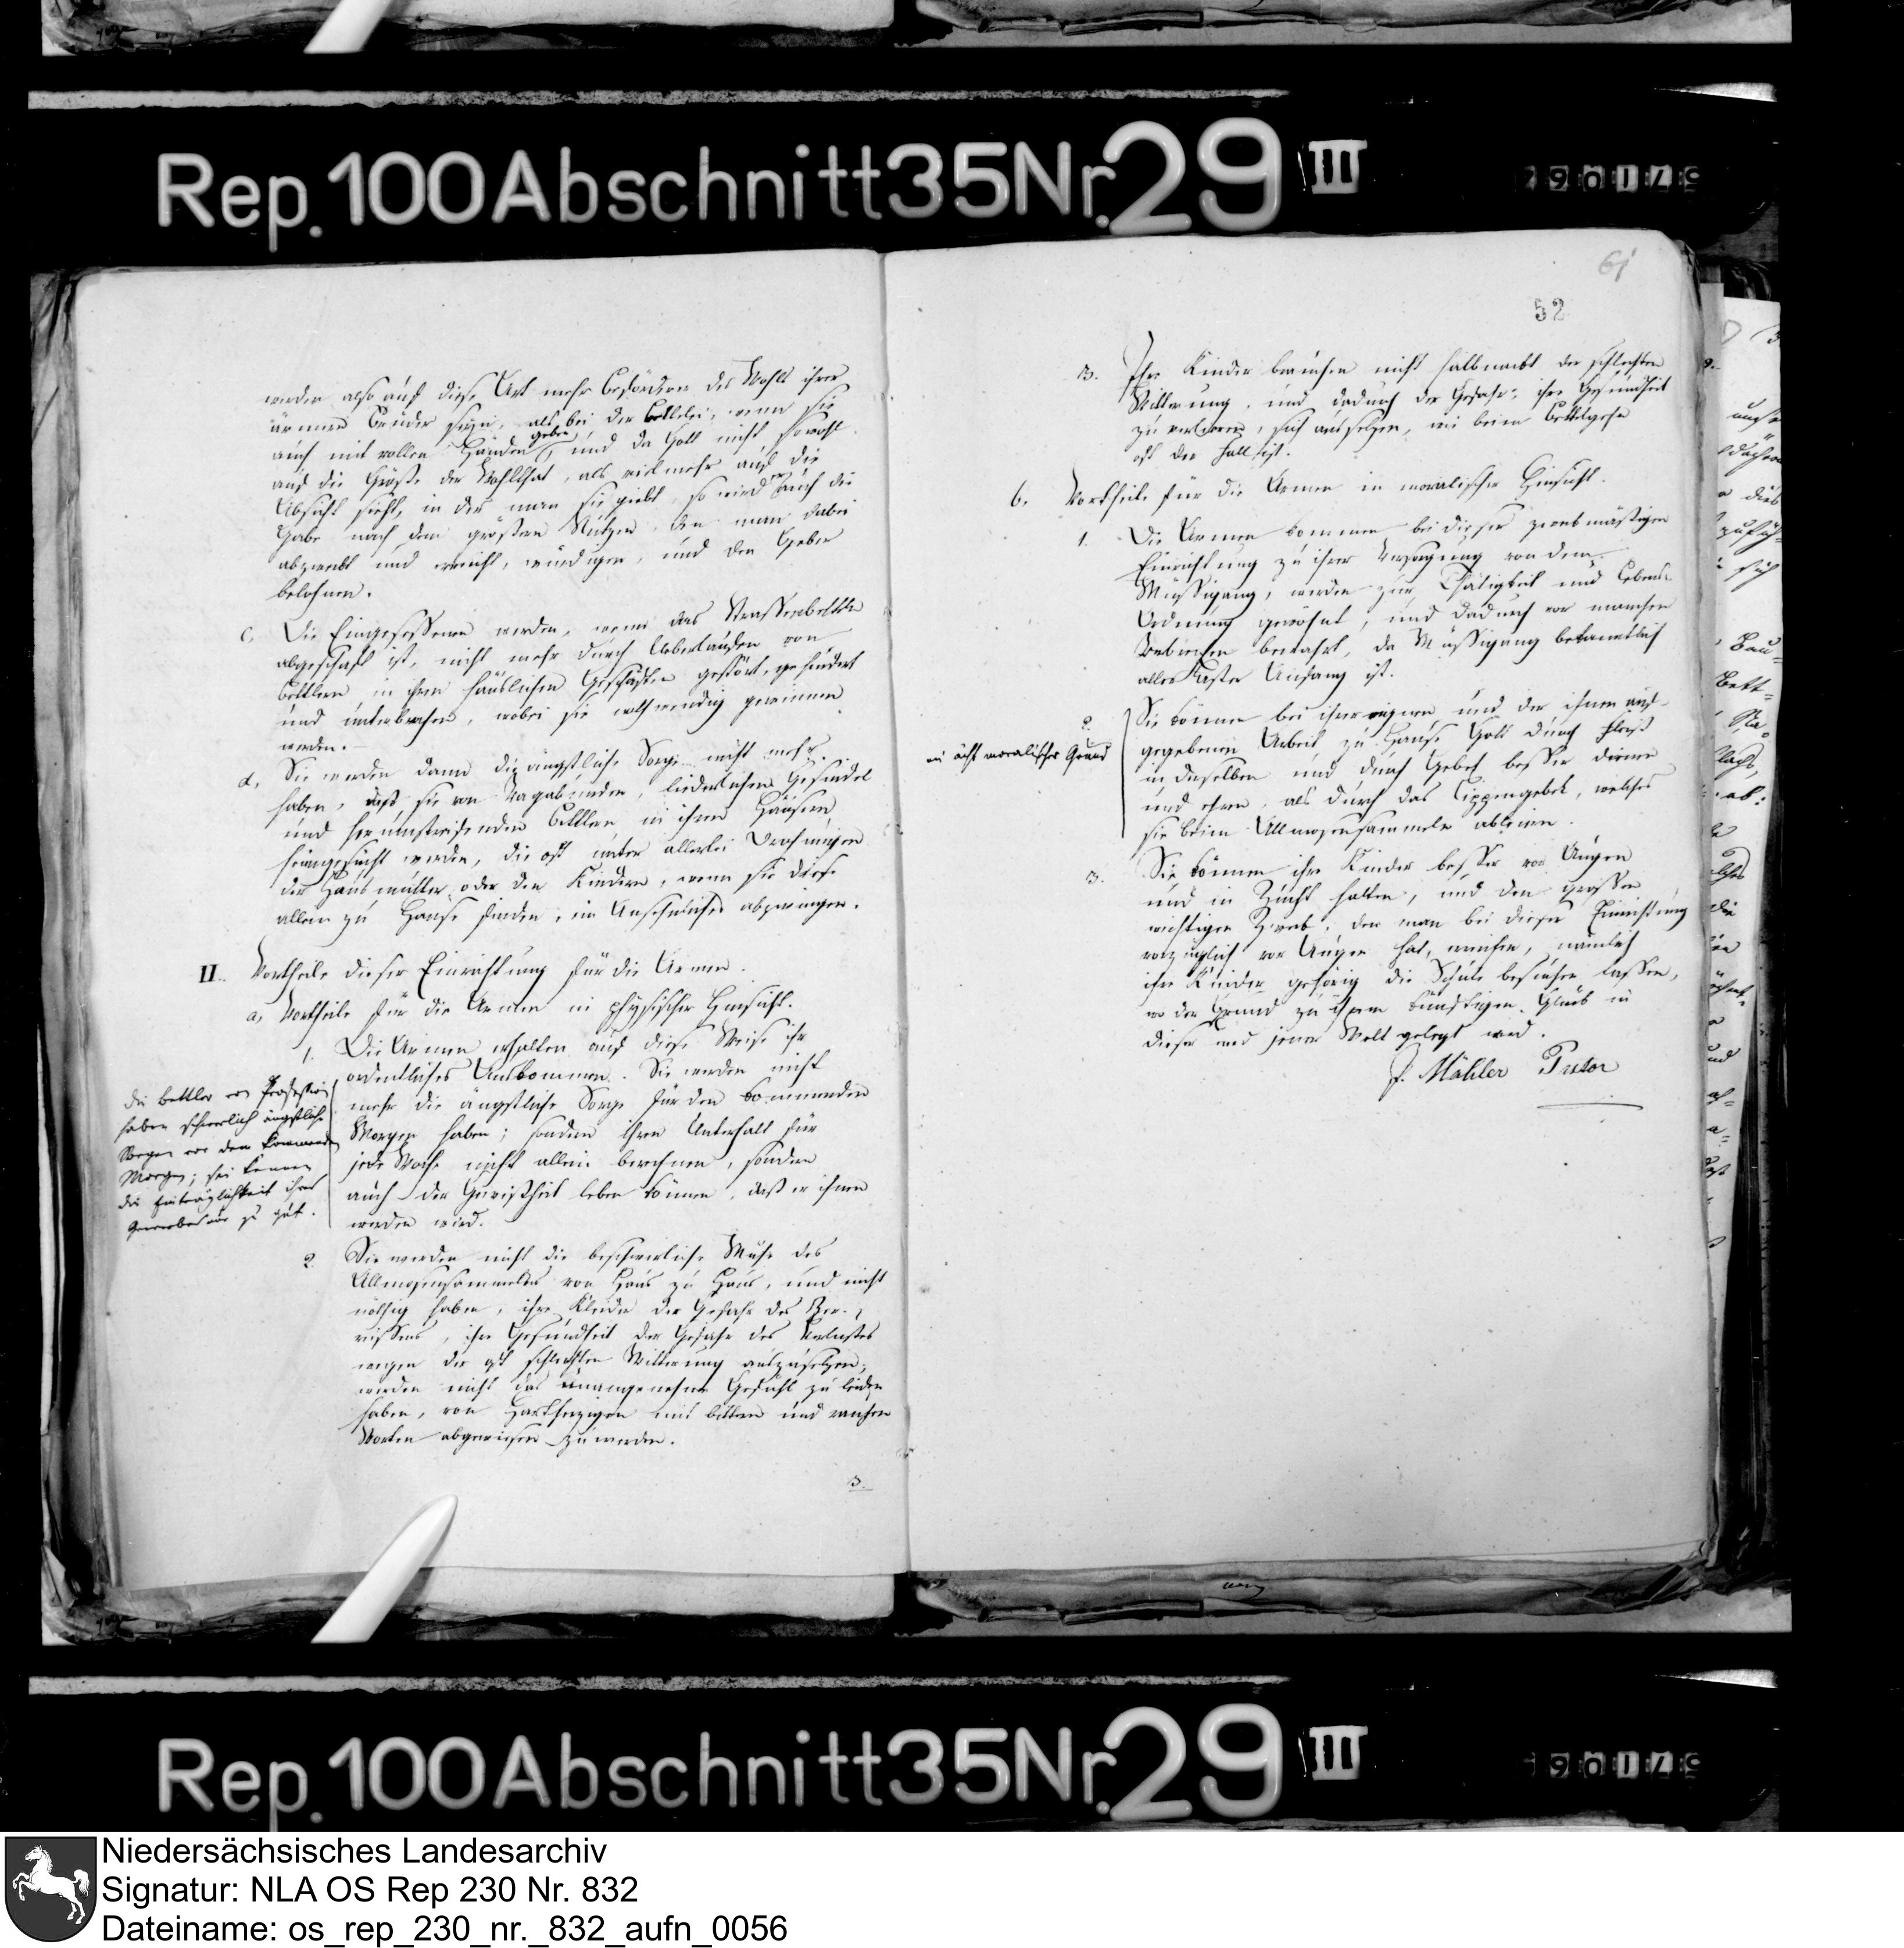 Rep. 100 Abschnitt 35 Nr. 29 III
werden also auf diese Art mehr Beförderer des Wohls ihrer
ärmern Brüder seyn, als bei der Bettelei, wenn sie
auch mit vollen Händen geben, und da Gott nicht sowohl
auf die Größe der Wohlthat, als vielmehr auf die
Absicht sieht, in der man sie giebt, so wird er auch die
Gabe nach dem größern Nutzen, den man dabei
abzweckt und erreicht, würdigen, und den Geber
belohnen.
c, Die Eingesessenen werden, wenn das Strassenbetteln
abgeschaft ist, nicht mehr durch Ueberlaufen von
Bettlern in ihren häuslichen Geschäften gestört, gehindert
und unterbrochen, wobei sie nothwendig gewinnen
werden.
d, Sie werden dann die ängstliche Sorge nicht mehr
haben, daß sie von Vagabunden, liederlichem Gesindel
und herumstreifenden Bettlern in ihren Häusern
heimgesucht werden, die oft unter allerlei Drohungen
der Hausmutter oder den Kindern, wenn sie diese
allein zu Hause finden, ein Ansehnliches abzwingen.
II. Vortheile dieser Einrichtung für die Armen.
a, Vortheile für die Armen in physischer Hinsicht.
1. Die Armen erhalten auf diese Weise ihr
ordentliches Auskommen. Sie werden nicht
mehr die ängstliche Sorge für den kommenden
Morgen haben; sondern ihren Unterhalt für
jede Woche nicht allein berechnen, sondern
auch der Gewißheit leben können, daß er ihnen
werden wird.
die Bettler von Profession
haben schwerlich ängstliche
Sorgen vor dem kommenden
Morgen; sie kennen
die Einträglichkeit ihres
Gewerbes nur zu gut.
2 Sie werden nicht die beschwerliche Mühe des
Allmosensammelns von Haus zu Haus, und nicht
nöthig haben, ihre Kleider der Gefahr des Zer-
reissens, ihre Gesundheit der Gefahr des Verlustes
wegen der oft schlechten Witterung auszusetzen;
werden nicht das unangenehme Gefühl zu leiden
haben, von Hartherzigen mit bittern und rauhen
Worten abgewiesen zu werden.
3.
61
52
3. Ihre Kinder brauchen nicht halbnackt der schlechten
Witterung, und dadurch der Gefahr, ihre Gesundheit
zu verlieren, sich aussetzen, wie beim Bettelgehn
oft der Fall ist.
b. Vortheile für die Armen in moralischer Hinsicht.
1. Die Armen kommen bei dieser zweckmäßigen
Einrichtung zu ihrer Versorgung von dem
Müssigang, werden zur Thätigkeit und Lebens-
Ordnung gewöhnt, und dadurch vor manchen
Verbrechen bewahrt, da Müssigang bekanntlich
aller Laster Anfang ist.
2 Sie können bei ihrer eignen und der ihnen auf-
gegebenen Arbeit zu Hause Gott durch Fleiß
in derselben und durch Gebet besser dienen
und ehren, als durch das Lippengebet, welches
sie beim Allmosensammeln ableiern.
ein ächt moralischer Grund
3. Sie können ihre Kinder besser vor Augen
und in Zucht halten, und den grossen
wichtigen Zweck, den man bei dieser Einrichtung
vorzüglich vor Augen hat, erreichen, nämlich
ihre Kinder gehörig die Schule besuchen lassen,
wo der Grund zu ihrem künftigen Glück in
dieser und jener Welt gelegt wird.
Mähler Pastor
Rep. 100 Abschnitt 35 Nr. 29 III
Niedersächsisches Landesarchiv
Signatur: NLA OS Rep 230 Nr. 832
Dateiname: os_rep_230_nr._832_aufn_0056